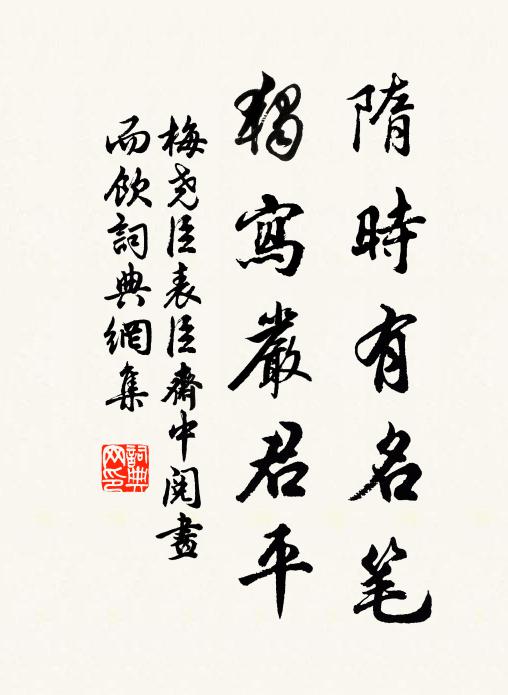 隋時有名笔
獨寫嚴君平
梅尧臣表臣齋中閱畫
而飲詞典網集
詞典
网印